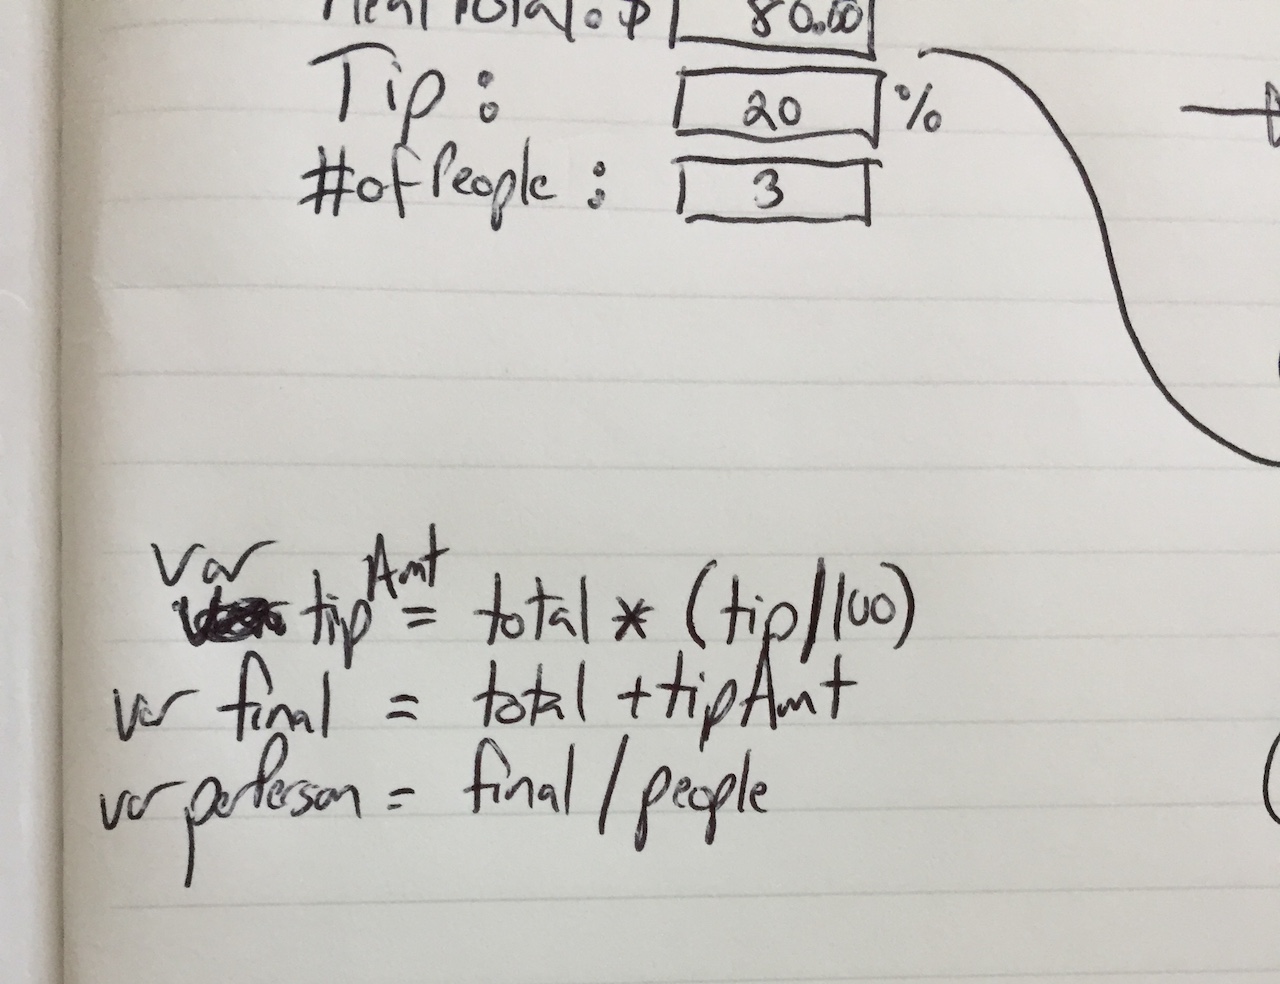 Meal Total: $ 80.00
Tip: 20 %
# of People: 3
var tipAmt = total * (tip/100)
var final = total + tipAmt
var perPerson = final / people